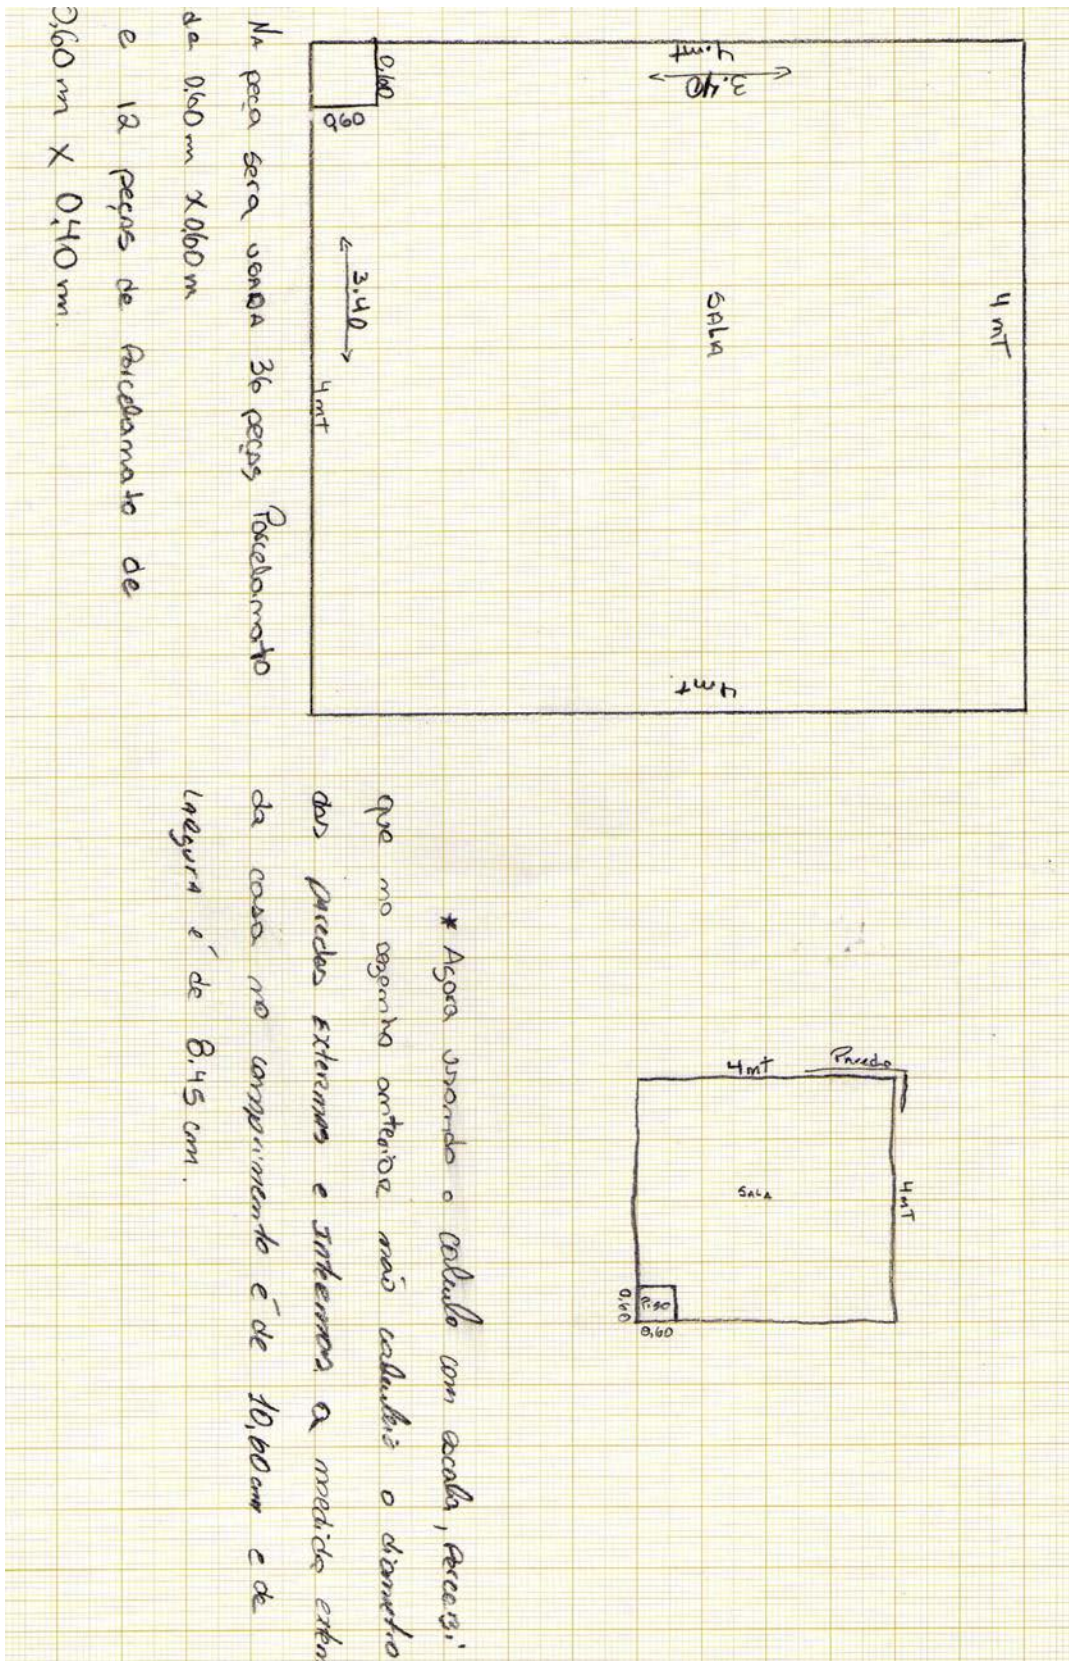 4 mT
SALA
4.mt
3.40
4mt
0,60
0,60
3.40
4mt
NA peça sera usADA 36 peças Porcelamato
de 0,60m x 0,60m
e 12 peças de Porcelamato de
0,60 m X 0,40 m.
Parede
4mt
4mT
SALA
0,60
Piso
0,60
* Agora usamdo o calculo com escala, PerceBi
que mo desemho amterior mão calculei o diametro
das paredes Externas e Internas a medida extern
da casa no comprimemto é de 10,60 cm e de
Largura é de 8.45 cm.